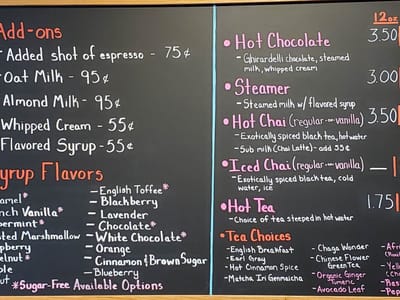 Add-ons
Added shot of espresso - 75¢
Oat Milk - 95¢
Almond Milk - 95¢
Whipped Cream - 55¢
Flavored Syrup - 55¢
yrup Flavors
English Toffee*
Blackberry
Lavender
Chocolate*
White Chocolate*
Orange
Cinnamon & Brown Sugar
Blueberry
amel*
nch Vanilla*
permint*
sted Marshmallow
pberry
elnut*
ple
nut
*Sugar-Free Available Options
12oz
Hot Chocolate 3.50
- Ghirardelli chocolate, steamed
milk, whipped cream
Steamer 3.00
- Steamed milk w/ flavored syrup
Hot Chai (regular -or- vanilla) 3.50
- Exotically spiced black tea, hot water
- Sub milk (Chai Latte) - add 55¢
Iced Chai (regular -or- vanilla) —
- Exotically spiced black tea, cold
water, ice
Hot Tea 1.75
- Choice of tea steeped in hot water
Tea Choices
- English Breakfast
- Earl Gray
- Hot Cinnamon Spice
- Matcha Iri Genmaicha
- Chaga Wonder
- Chinese Flower
Green Tea
- Organic Ginger
Tumeric
- Avocado Leaf